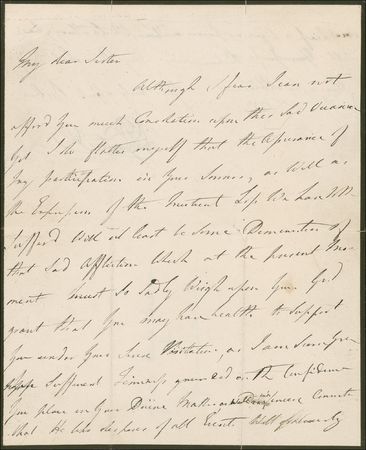 My dear Sister
Although I fear I can not
afford you much Consolation upon this Sad Occasion
yet I do flatter myself that the Assurance of
my participation in your Sorrows, as Well as
the Expression of the Loss We have
Suffer'd Will at least be some Diminution of
that Sad Affliction Which at the present Mo-
ment must So Sadly Weigh upon you. God
grant that you may have health to Support
you under your Visitation, as I am Sure you
Sufficient Firmness grounded on the Confidence
you place in your Divine Maker
that He who disposes of all Events Will